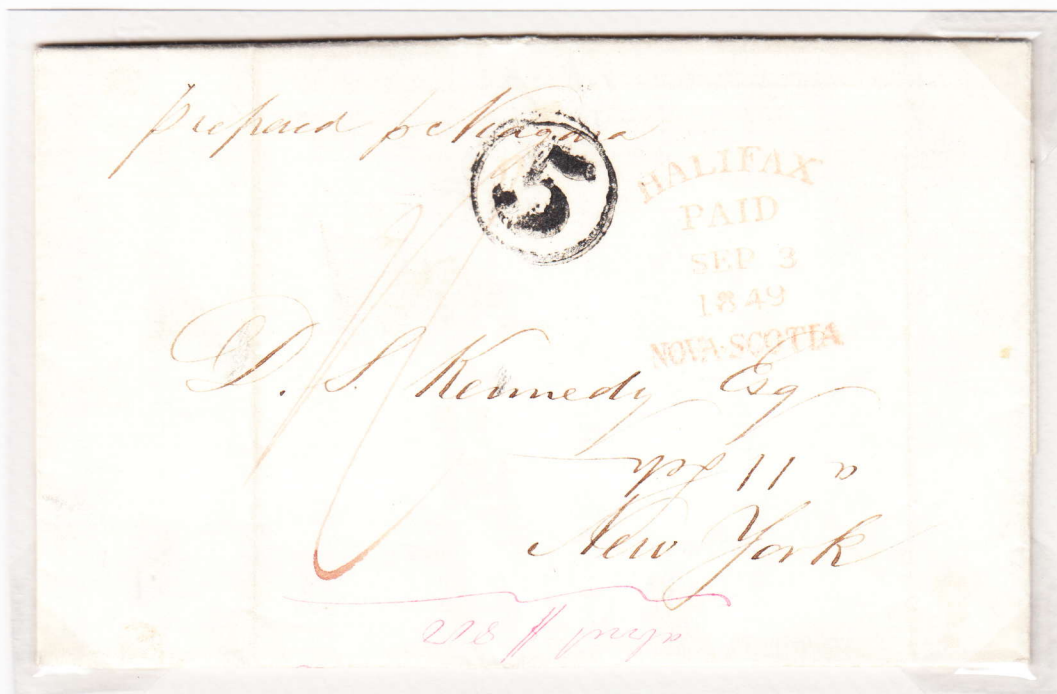 Prepaid p Niagara
5
HALIFAX
PAID
SEP 3
1849
NOVA-SCOTIA
D. S. Kennedy Esq
New York